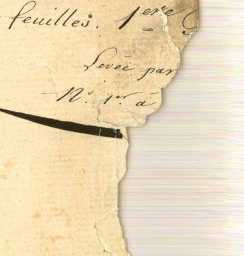 feuilles. 1ere
Levée par
N.º 1er à